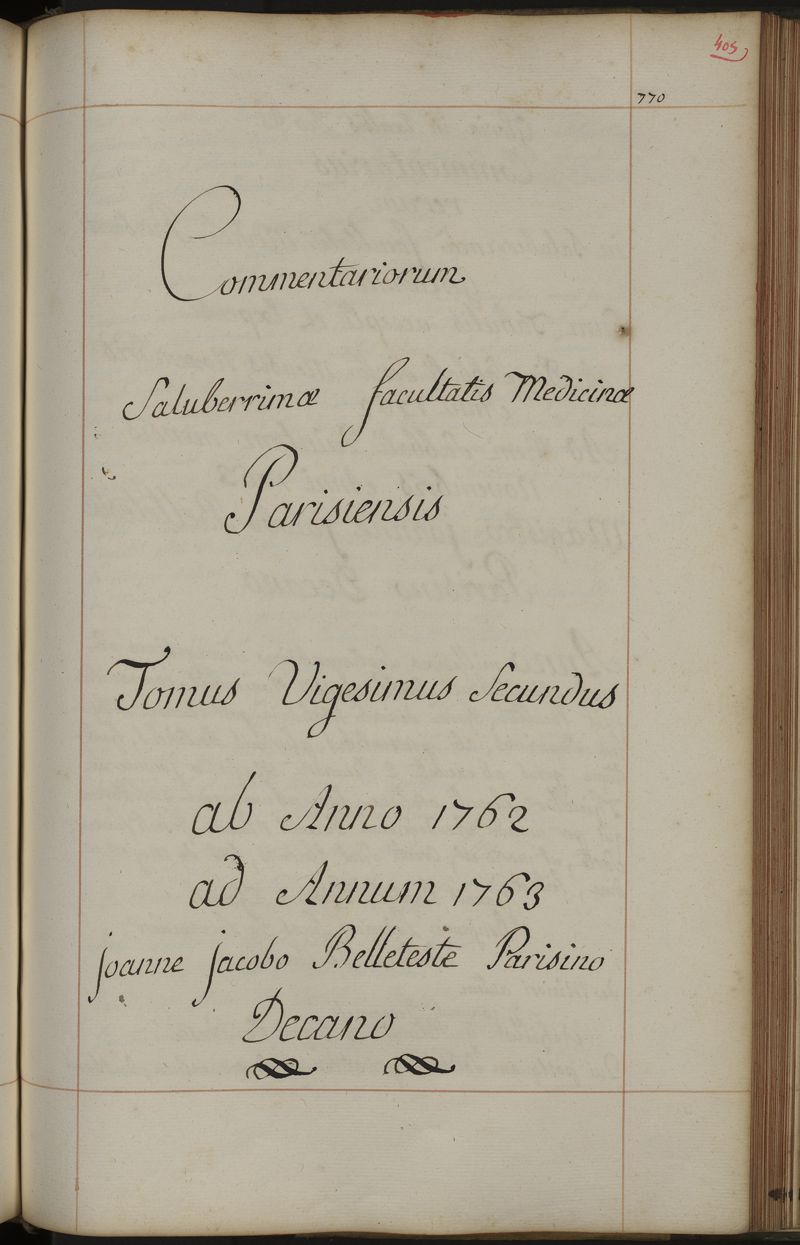 405
770
Commentariorum
Saluberrimæ facultatis Medicinæ
Parisiensis
Tomus Vigesimus Secundus
ab Anno 1762
ad Annum 1763
joanne jacobo Belleteste Parisino
Decano